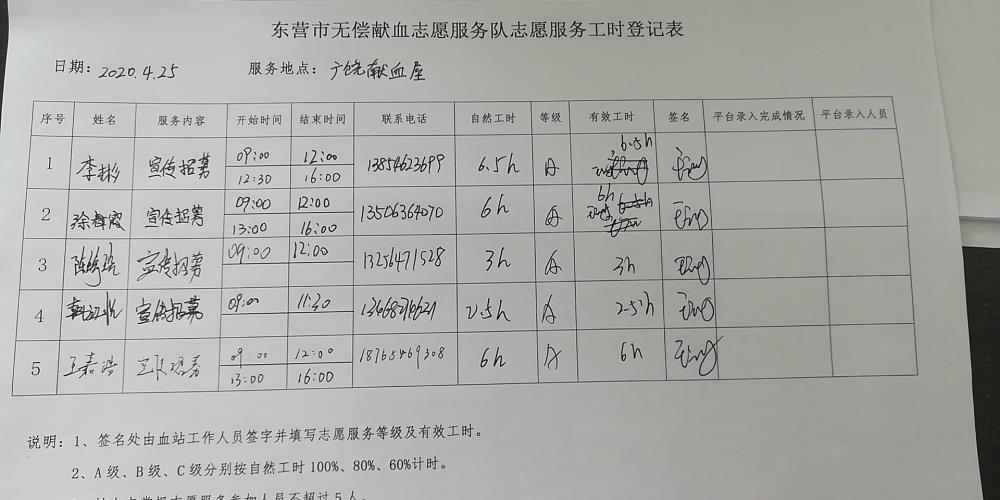 东营市无偿献血志愿服务队志愿服务工时登记表
日期: 2020.4.25 服务地点: 广饶献血屋
序号 姓名 服务内容 开始时间 结束时间 联系电话 自然工时 等级 有效工时 签名 平台录入完成情况 平台录入人员
1 李彬 宣传招募 09:00 12:00 13854623699 6.5h A 6.5h
12:30 16:00
2 徐梅霞 宣传招募 09:00 12:00 13506364070 6h A 6h
13:00 16:00
3 宣传招募 09:00 12:00 13256471528 3h A 3h
4 宣传招募 09:00 11:30 2.5h A 2.5h
5 王嘉浩 09:00 12:00 18765469308 6h A 6h
13:00 16:00
说明: 1、签名处由血站工作人员签字并填写志愿服务等级及有效工时。
2、A级、B级、C级分别按自然工时100%、80%、60%计时。
志愿服务参加人员不超过5人。